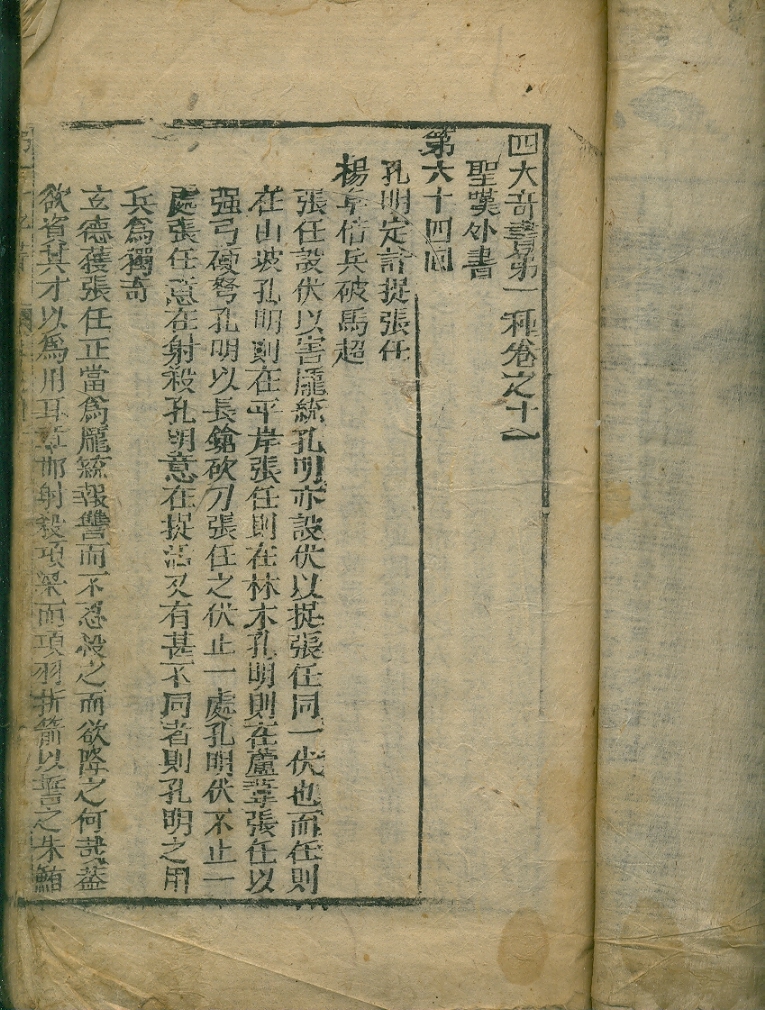 四大奇書第一種卷之十七
聖嘆外書
第六十四回
孔明定計捉張任
楊阜借兵破馬超
張任設伏以害龐統孔明亦設伏以捉張任同一伏也而任則
在山坡孔明則在平岸張任則在林木孔明則在蘆葦張任以
强弓硬弩孔明以長鎗砍刀張任之伏止一處孔明伏不止一
處張任意在射殺孔明意在捉活又有甚不同者則孔明之用
兵爲獨奇
玄德獲張任正當爲龐統報讐而不忍殺之而欲降之何哉葢
欲省其才以爲用耳章邯射殺項梁而項羽折箭以誓之朱鮪